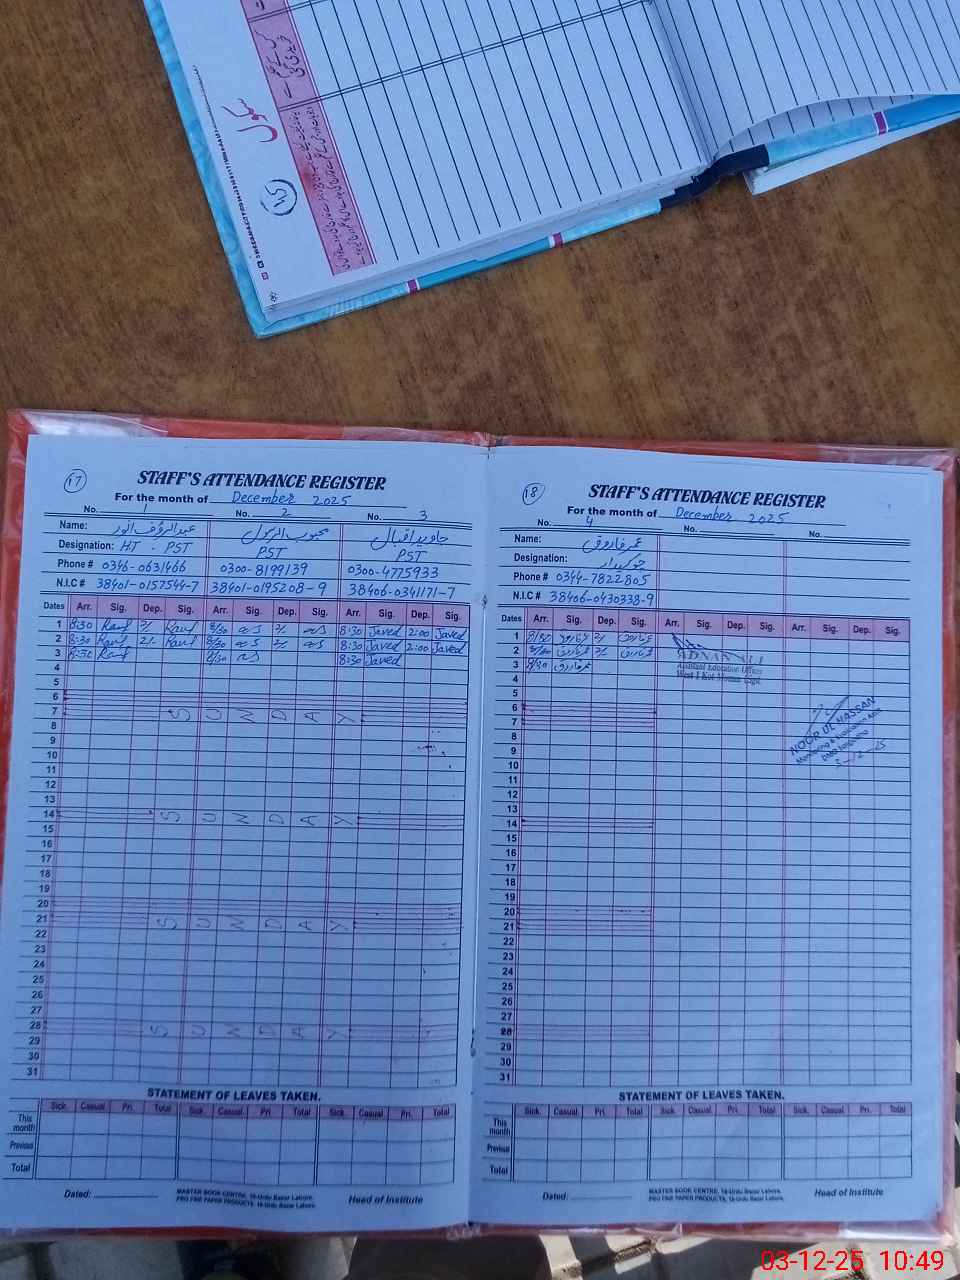 سکول
STAFF'S ATTENDANCE REGISTER
17
For the month of December 2025
No. 1 No. 2 No. 3
Name: عبدالرؤف انور محبوب الرسول جاوید اقبال
Designation: HT - PST PST PST
Phone # 0346-0631466 0300-8199139 0300-4775933
N.I.C # 38401-0157544-7 38401-0195208-9 38406-0341171-7
Dates Arr. Sig. Dep. Sig. Arr. Sig. Dep. Sig. Arr. Sig. Dep. Sig.
1 8:30 Rauf 2/- Rauf 8/30 2/- 8:30 Javed 2:00 Javed
2 8:30 Rauf 2/- Rauf 8/30 2/- 8:30 Javed 2:00 Javed
3 8:30 Rauf 8/30 8:30 Javed
4
5
6
7 S U N D A Y
8
9
10
11
12
13
14 S U N D A Y
15
16
17
18
19
20
21 S U N D A Y
22
23
24
25
26
27
28 S U N D A Y
29
30
31
STATEMENT OF LEAVES TAKEN.
Sick. Casual Pri. Total Sick. Casual Pri. Total Sick. Casual Pri. Total
This month
Previous
Total
Dated: Head of Institute
MASTER BOOK CENTRE, 16-Urdu Bazar Lahore.
PRO FINE PAPER PRODUCTS, 16-Urdu Bazar Lahore.
18
STAFF'S ATTENDANCE REGISTER
For the month of December 2025
No. 4 No. No.
Name: عمر فاروق
Designation: چوکیدار
Phone # 0344-7822805
N.I.C # 38406-0430338-9
Dates Arr. Sig. Dep. Sig. Arr. Sig. Dep. Sig. Arr. Sig. Dep. Sig.
1 8/30 عمرفاروق 2/- عمرفاروق
2 8/30 عمرفاروق 2/- عمرفاروق
3 8/30 عمرفاروق
ADNAN ALI
Assistant Education Officer
West I Kot Momin (Sgd)
4
5
6
7
8
9
10
11
12
13
14
15
16
17
18
19
20
21
22
23
24
25
26
27
28
29
30
31
NOOR UL HASSAN
Monitoring & Evaluation Asstt
Distt Sargodha
3-12-25
STATEMENT OF LEAVES TAKEN.
Sick. Casual Pri. Total Sick. Casual Pri. Total Sick. Casual Pri. Total
This month
Previous
Total
Dated: Head of Institute
MASTER BOOK CENTRE, 16-Urdu Bazar Lahore.
PRO FINE PAPER PRODUCTS, 16-Urdu Bazar Lahore.
03-12-25 10:49